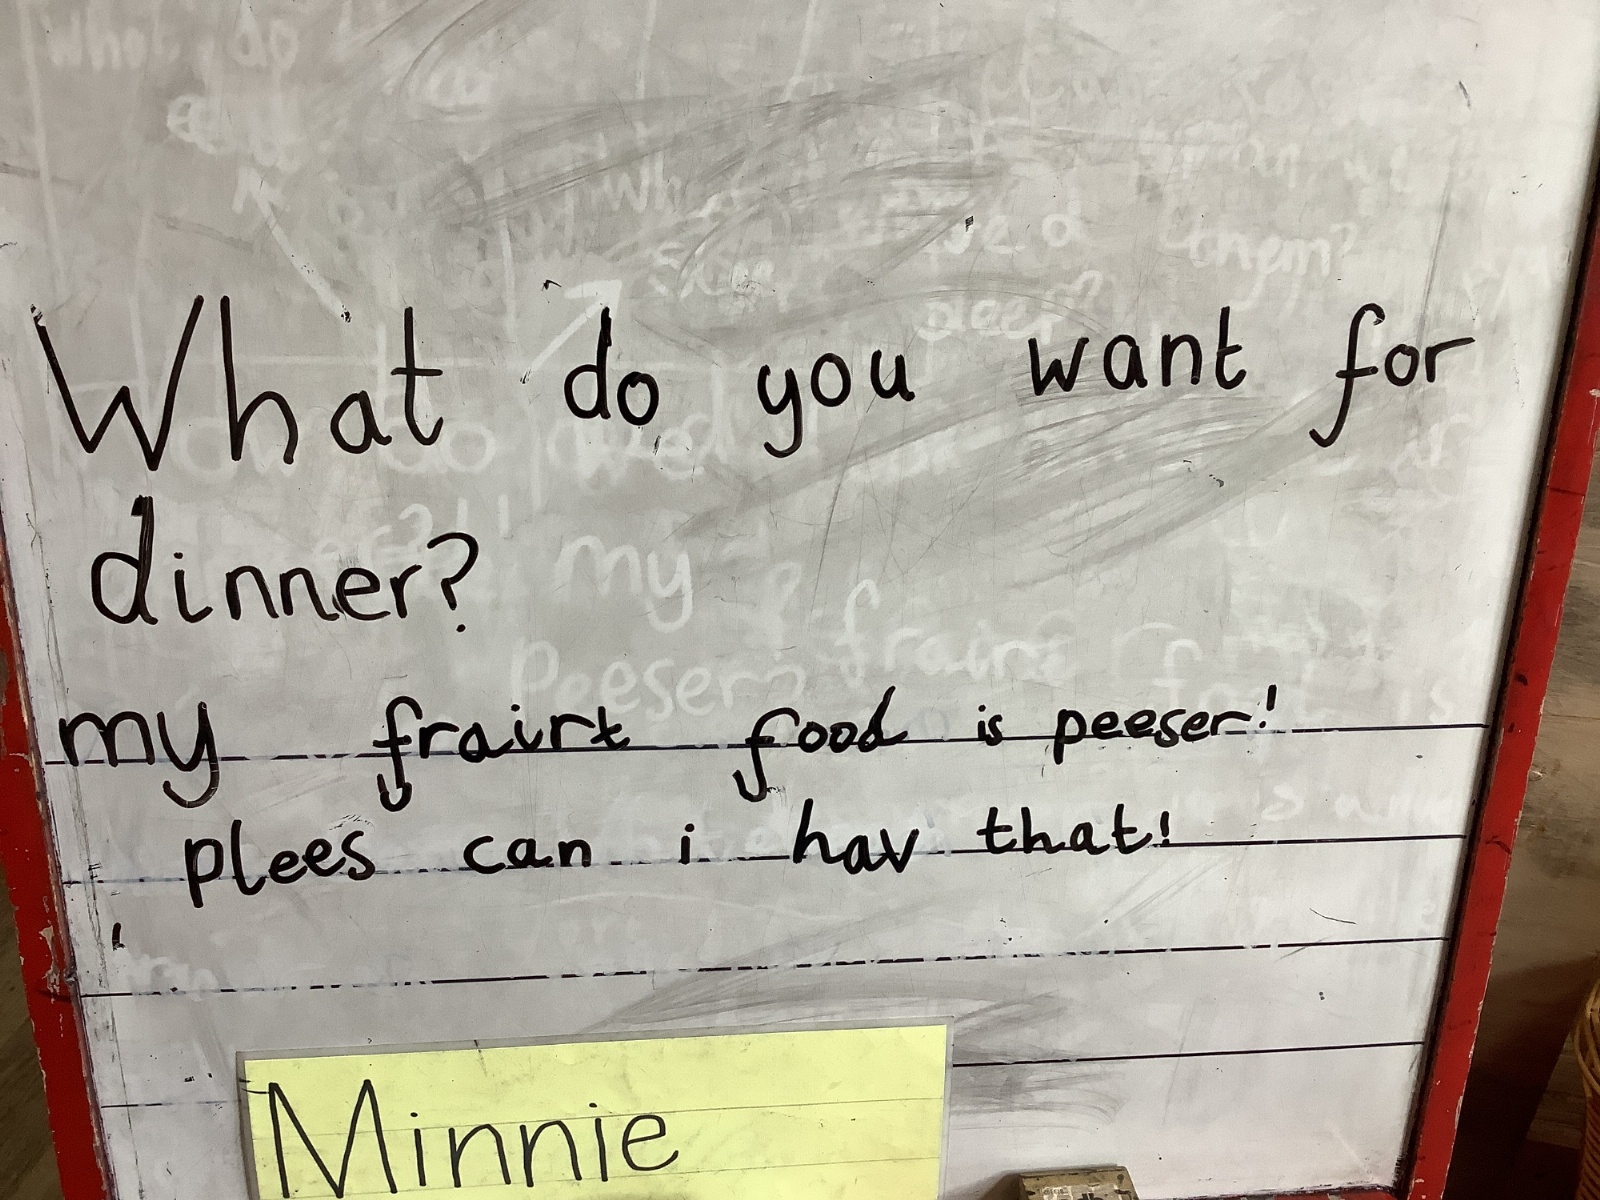 What do you want for
dinner?
my frairt food is peeser!
plees can i hav that!
Minnie